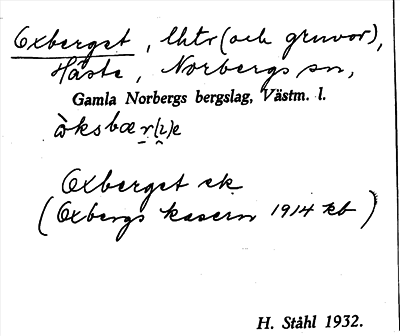 Oxberget, lhtr (och gruvor),
Häste, Norbergs sn,
Gamla Norbergs bergslag, Västm. l.
Oxberget ek
(Oxbergs kasern 1914 kb)
H. Ståhl 1932.